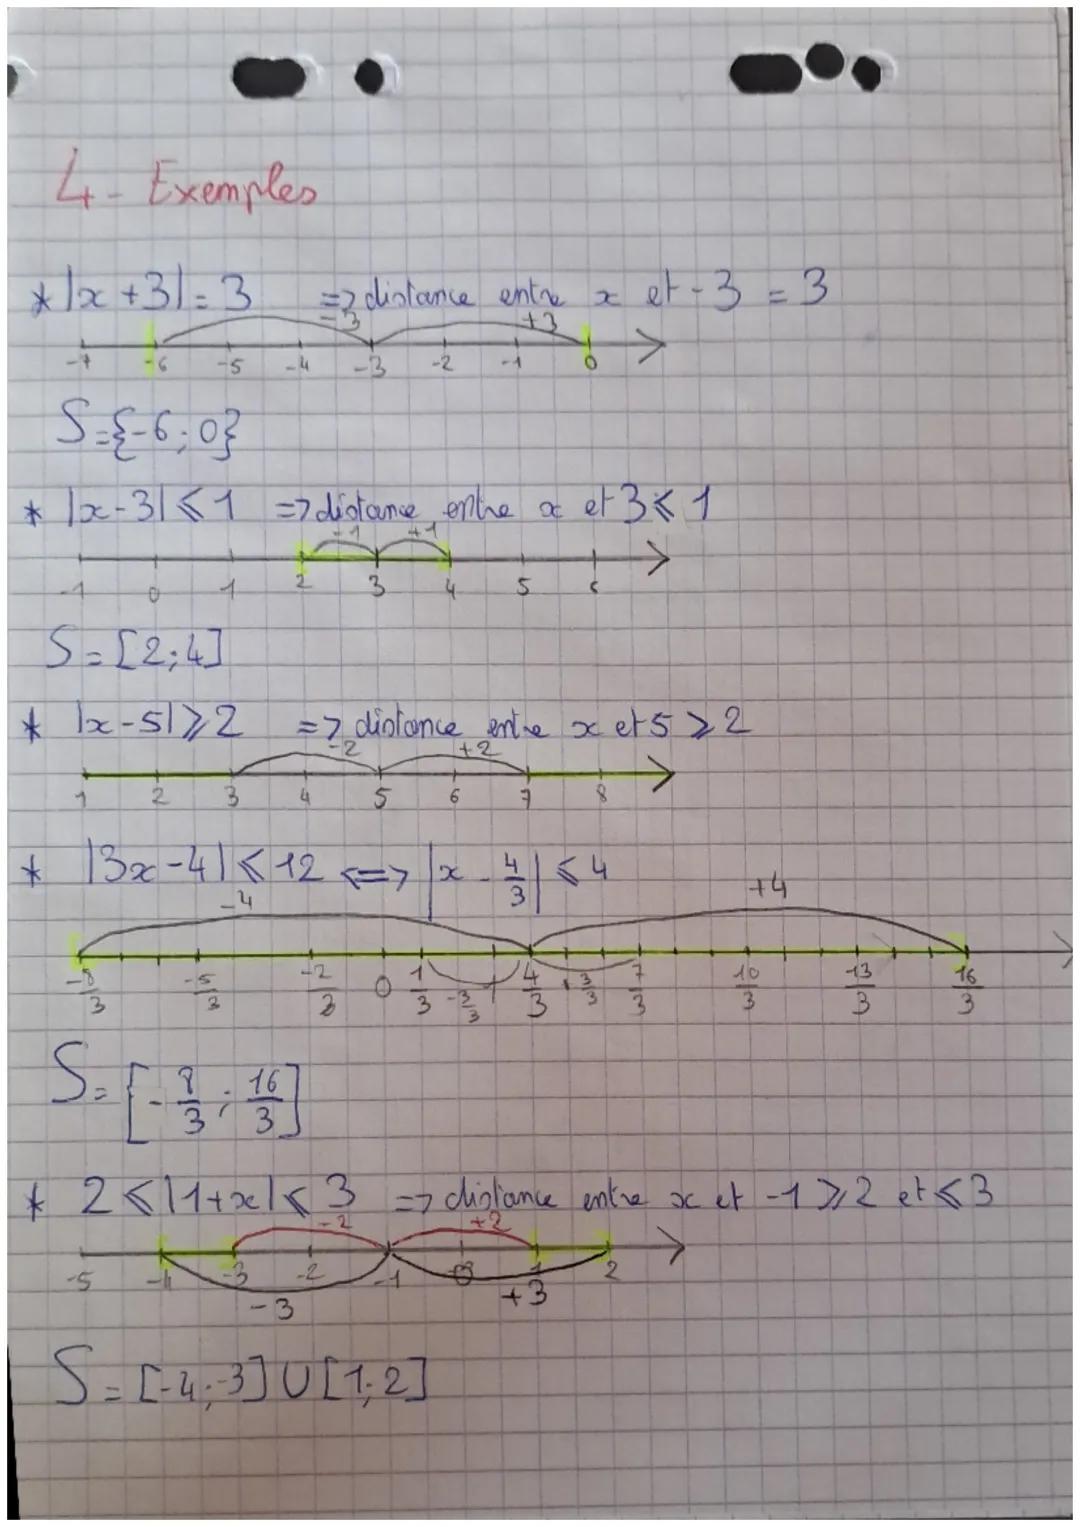 4 - Exemples
* |x + 3| = 3 => distance entre x et -3 = 3
-3 +3
-7 -6 -5 -4 -3 -2 -1 0
S = {-6 ; 0}
* |x - 3| ⩽ 1 => distance entre x et 3 ⩽ 1
-1 +1
-1 0 1 2 3 4 5 6
S = [2 ; 4]
* |x - 5| ⩾ 2 => distance entre x et 5 ⩾ 2
-2 +2
1 2 3 4 5 6 7 8
* |3x - 4| ⩽ 12 <=> |x - 4/3| ⩽ 4
-4 +4
-8/3 -5/3 -2/3 0 1/3 -3/3 4/3 +3/3 7/3 10/3 13/3 16/3
S = [-8/3 ; 16/3]
* 2 ⩽ |1 + x| ⩽ 3 => distance entre x et -1 ⩾ 2 et ⩽ 3
-2 +2
-5 -4 -3 -2 -1 0 1 2
-3 +3
S = [-4 ; -3] U [1 ; 2]